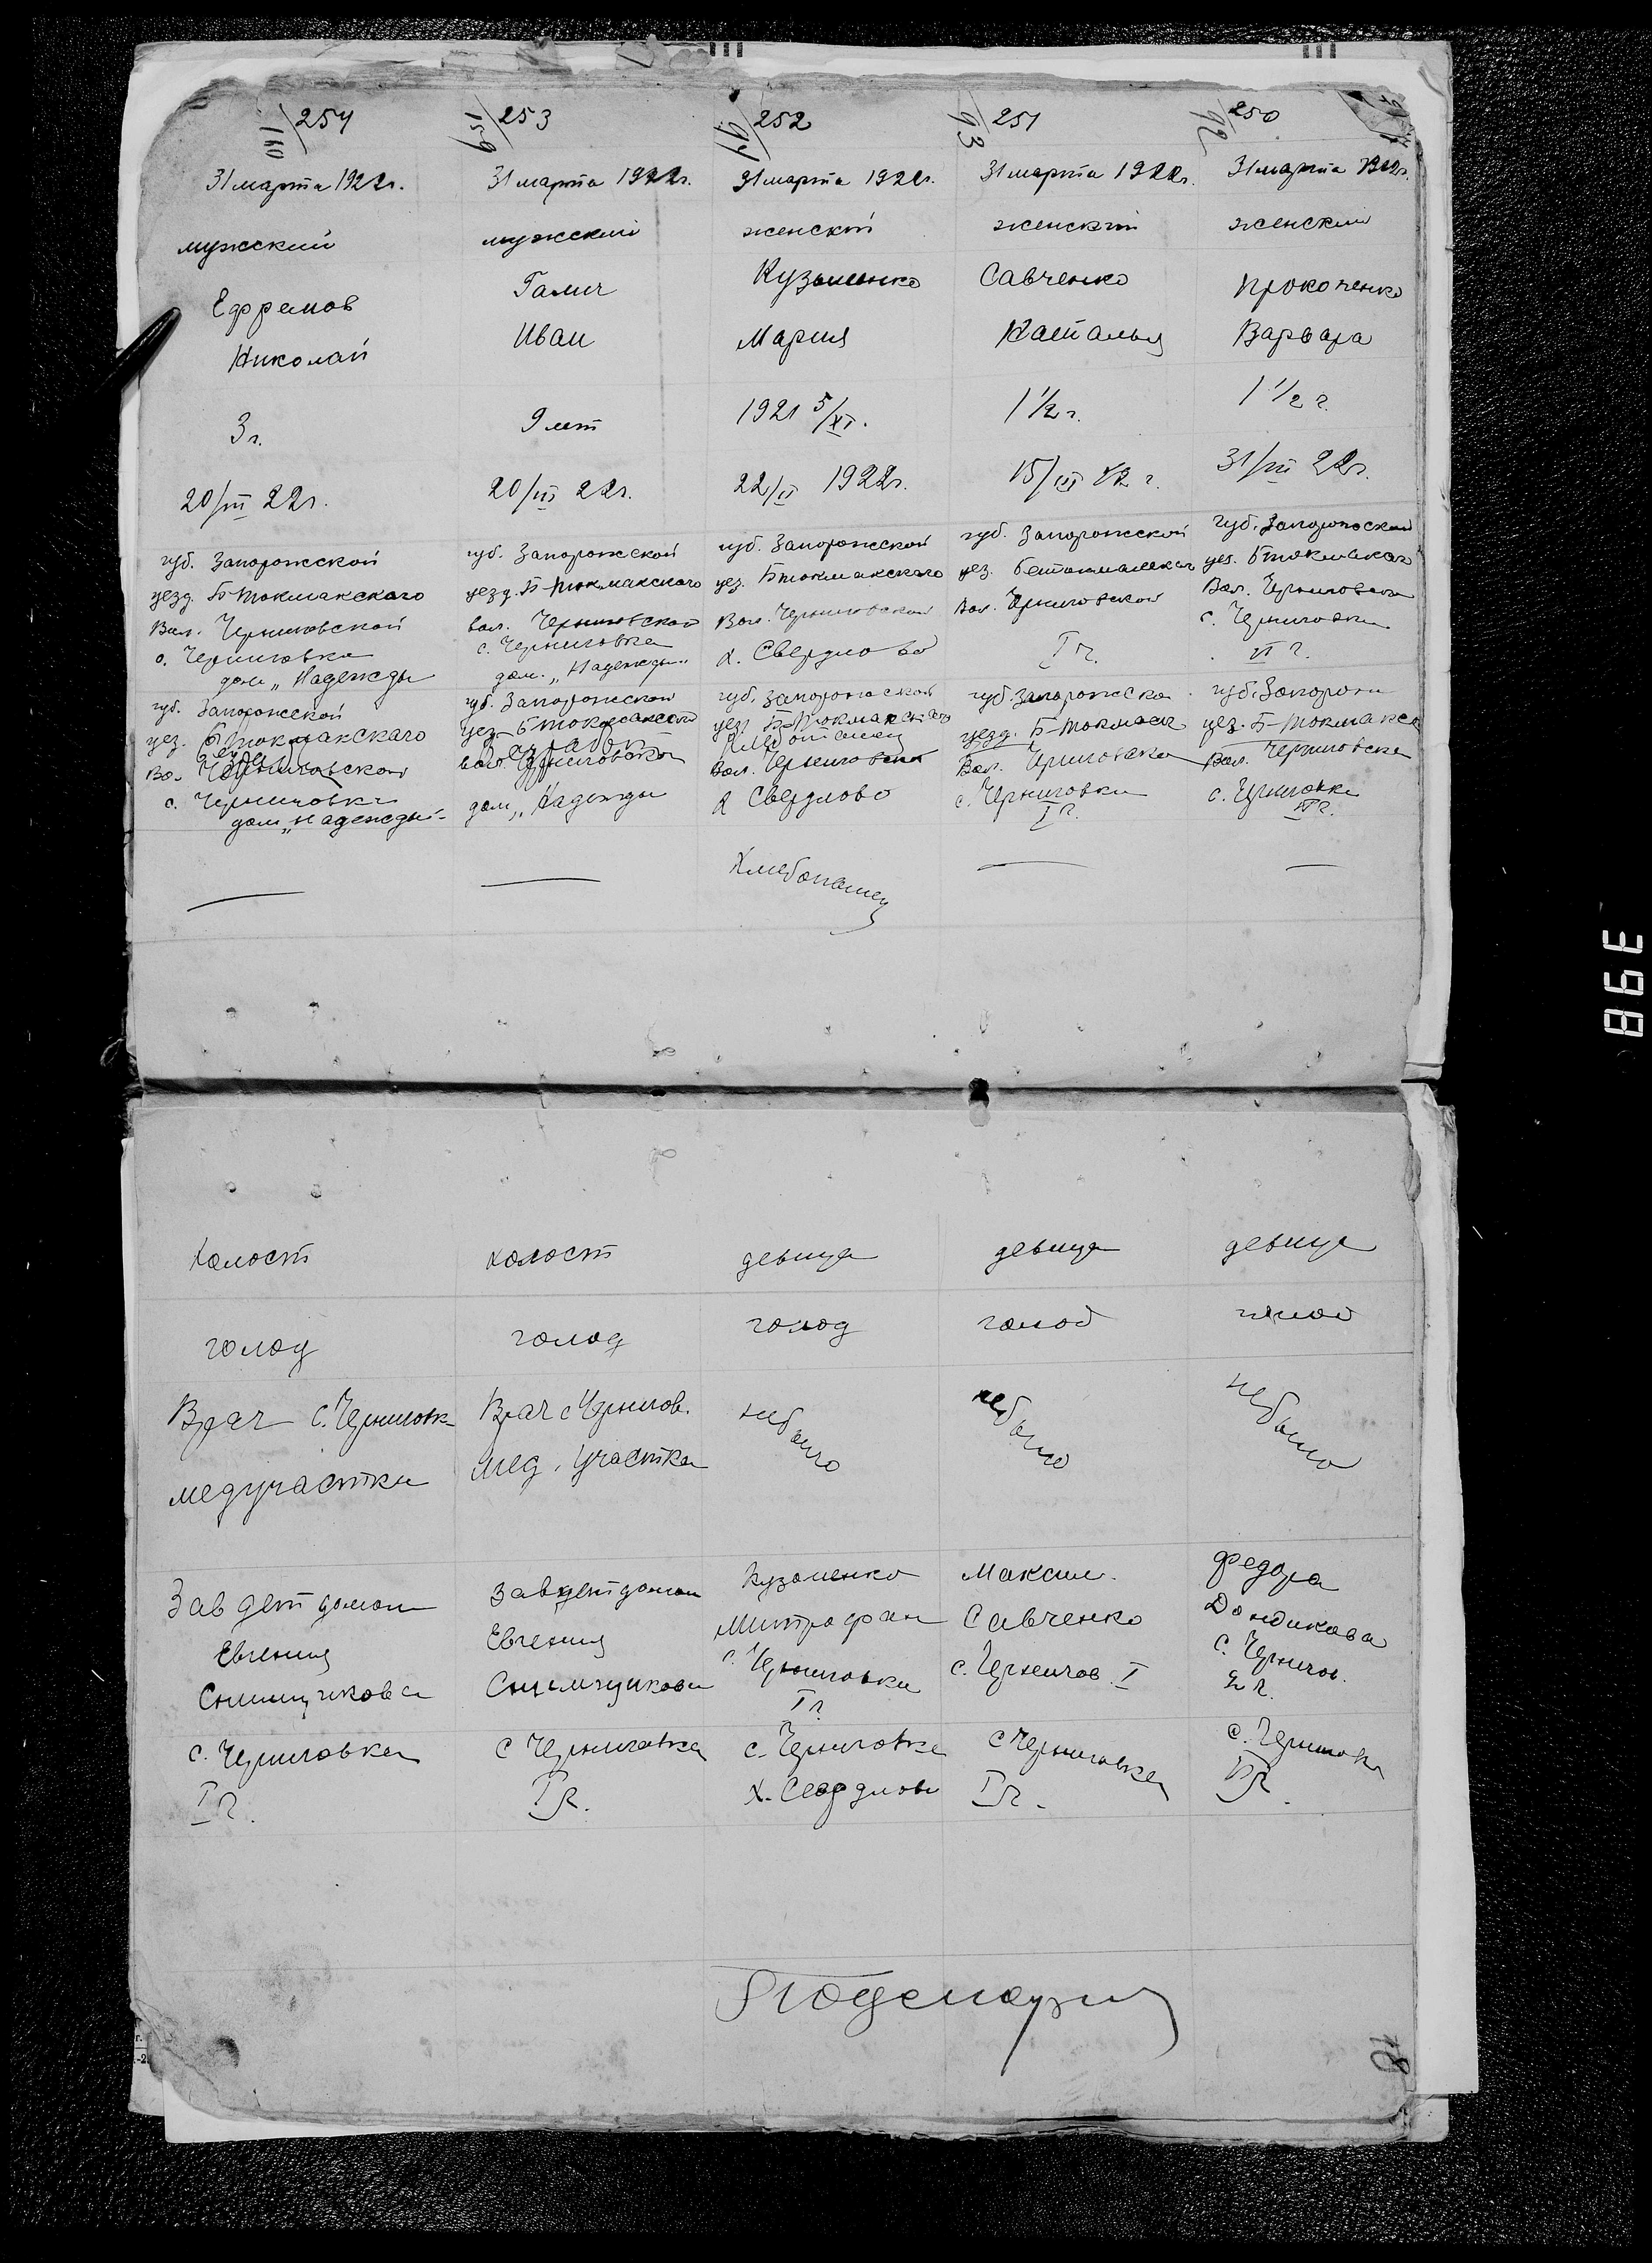 110/254
31 марта 1922г.
мужский
Ефремов
Николай
3 г.
20/III 22г.
губ. Запорожской
уезд. Б-Токмакского
Вол. Черниговской
с. Черниговка
дом „Надежды
губ. Запорожской
уез. Б Токмакского
Вол. Черниговской
с. Черниговка
дом „Надежды"
—
159/253
31 марта 1922г.
мужский
Галич
Иван
9 лет
20/III 22г.
губ. Запорожской
уезд. Б-Токмакского
вол. Черниговской
с. Черниговка
дом. „Надежды"
губ. Запорожской
уез. Б Токмакской
вол. Черниговской
дом „Надежды
—
94/252
31 марта 1922г.
женский
Кузьменко
Мария
1921 5/XI.
22/II 1922г.
губ. Запорожской
уез. Б Токмакского
Вол. Черниговской
х. Свердлово
губ. Запорожской
уез. Б-Токмакского
Вол. Черниговской
х Свердлово
Хлебопашец
93/251
31 марта 1922г.
женский
Савченко
Наталья
1 1/2 г.
15/III 22 г.
губ. Запорожской
уез.
Вол. Черниговской
I г.
губ. Запорожской
уезд. Б-Токмакск
Вол. Черниговской
с. Черниговка
I г.
—
92/250
31 марта 1922г.
женский
Прокопенко
Варвара
1 1/2 г.
31/III 22г.
губ. Запорожской
уез. Б Токмакского
Вол. Черниговской
с. Черниговка
VI г.
губ. Запорож
уез. Б-Токмакск
Вол. Черниговска
с. Черниговка
VI г.
—
398
Холост
голод
Врач с. Черниговк
медучастка
Зав детдомом
Евгения
с. Черниговка
I г.
холост
голод
Врач с Чернигов.
мед. участка
Завдетдомом
Евгения
с Черниговка
I г.
девица
голод
не было
Кузьменко
Митрофан
с. Черниговка
I г.
с. Черниговка
х. Свердлово
девица
голод
не было
Максим
Савченко
с. Чернигов. I
с Черниговка
I г.
девица
голод
не было
Федора
с. Чернигов.
с. Черниговка
VI г.
18